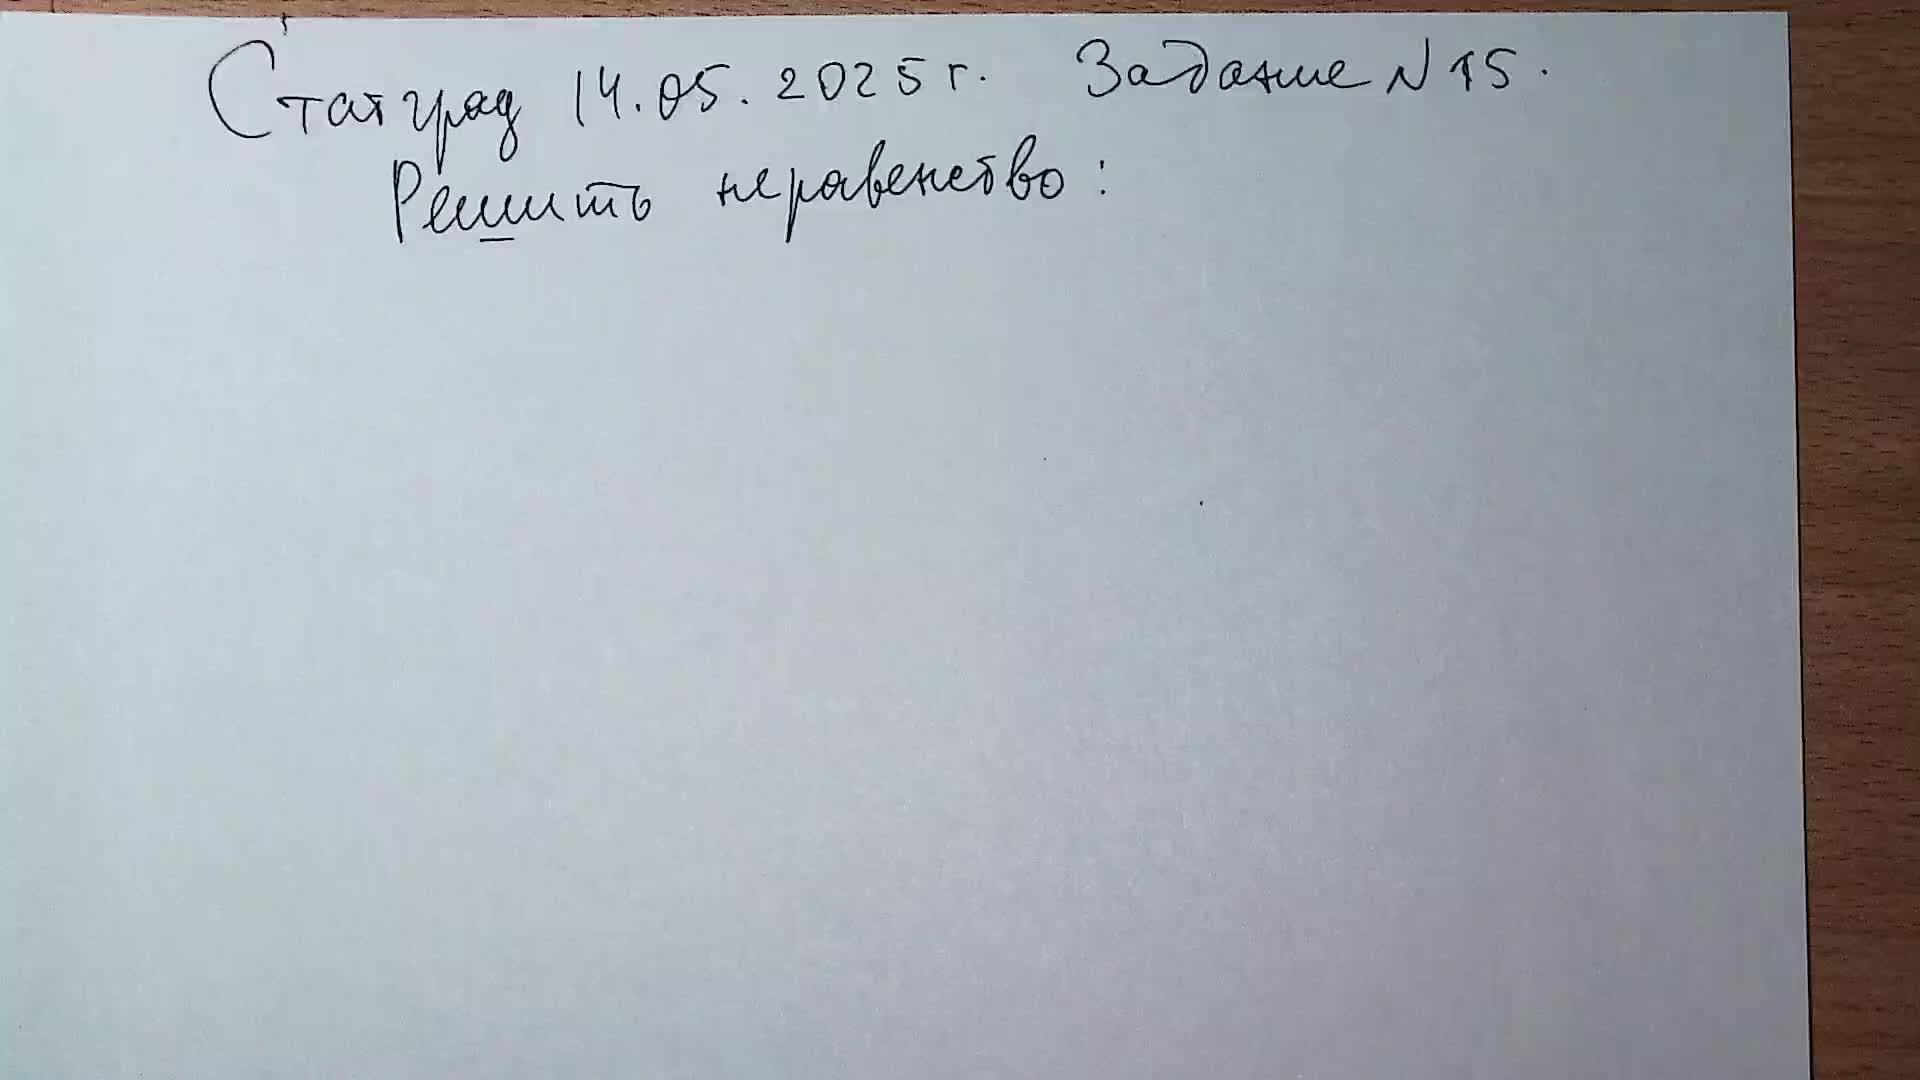 Статград 14.05.2025 г. Задание N 15.
Решить неравенство: